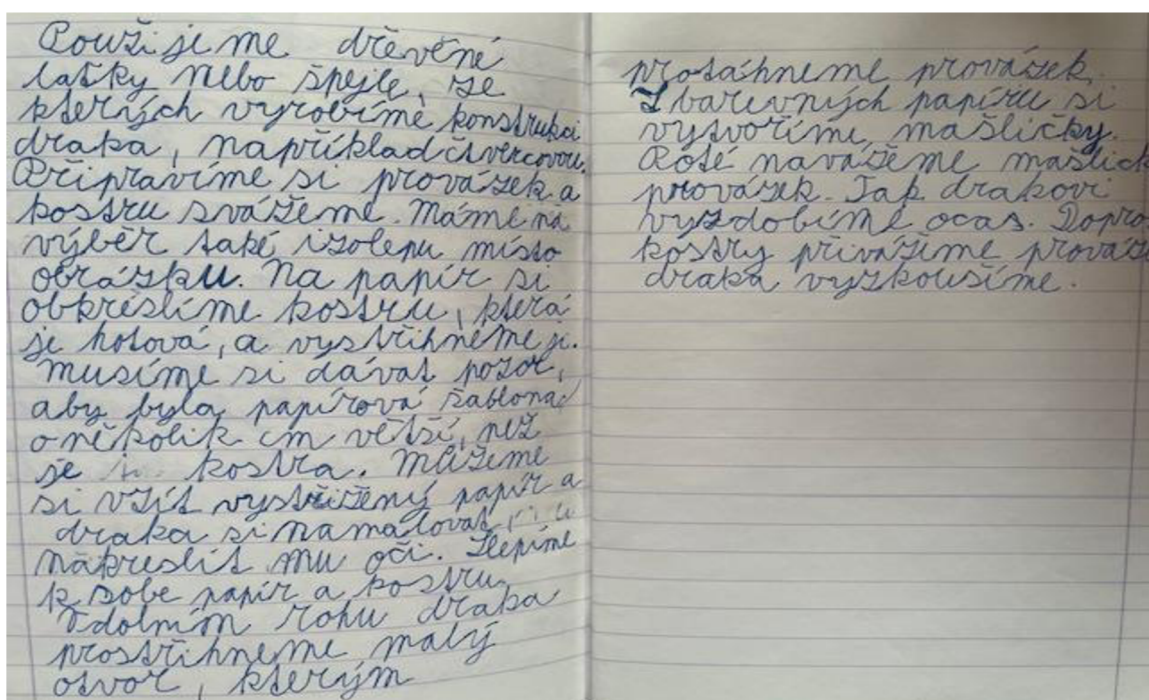 Použijeme dřevěné
laťky nebo špejle, ze
kterých vyrobíme konstrukci
draka, například čtvercovou.
Připravíme si provázek a
kostru svážeme. Máme na
výběr také izolepu místo
obrázku. Na papír si
obkreslíme kostru, která
je hotová, a vystřihneme ji.
Musíme si dávat pozor,
aby byla papírová šablona
o několik cm větší, než
je kostra. Můžeme
si vzít vystřižený papír a
draka si namalovat,
nakreslit mu oči. Slepíme
k sobe papír a kostru.
V dolním rohu draka
prostřihneme malý
otvor, kterým
protáhneme provázek.
Z barevných papíru si
vytvoříme mašličky.
Poté navážeme mašličk
provázek. Tak drakovi
vyzdobíme ocas. Dopro
kostry přivážíme prováz
draka vyzkoušíme.